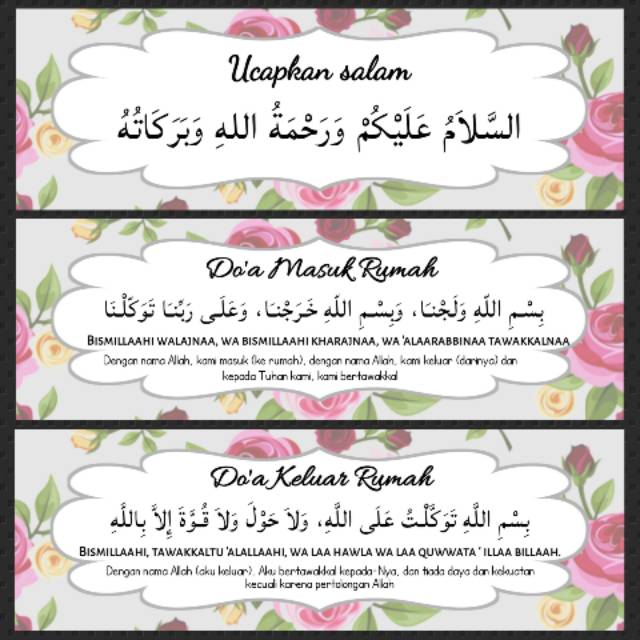 Ucapkan salam
السَّلاَمُ عَلَيْكُمْ وَرَحْمَةُ اللهِ وَبَرَكَاتُهُ
Do'a Masuk Rumah
بِسْمِ اللَّهِ وَلَجْنَا، وَبِسْمِ اللَّهِ خَرَجْنَا، وَعَلَى رَبِّنَا تَوَكَّلْنَا
BISMILLAAHI WALAJNAA, WA BISMILLAAHI KHARAJNAA, WA 'ALAARABBINAA TAWAKKALNAA
Dengan nama Allah, kami masuk (ke rumah), dengan nama Allah, kami keluar (darinya) dan
kepada Tuhan kami, kami bertawakkal
Do'a Keluar Rumah
بِسْمِ اللَّهِ تَوَكَّلْتُ عَلَى اللَّهِ، وَلاَ حَوْلَ وَلاَ قُوَّةَ إِلاَّ بِاللَّهِ
BISMILLAAHI, TAWAKKALTU 'ALALLAAHI, WA LAA HAWLA WA LAA QUWWATA ' ILLAA BILLAAH.
Dengan nama Allah (aku keluar). Aku bertawakkal kepada-Nya, dan tiada daya dan kekuatan
kecuali karena pertolongan Allah